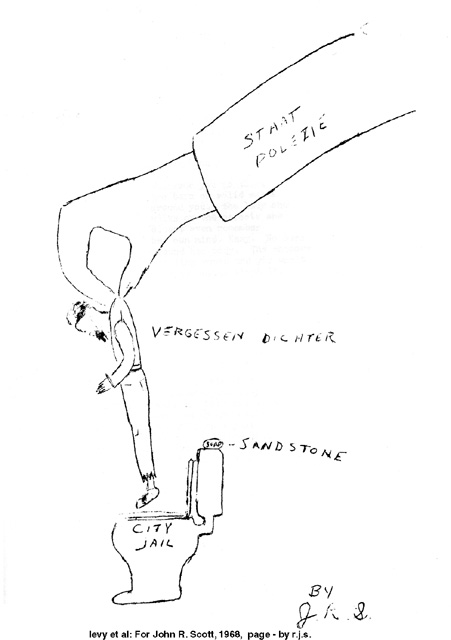 STAAT
POLEZIE
VERGESSEN DICHTER
SOAP - SANDSTONE
CITY
JAIL
BY
J. R. S.
levy et al: For John R. Scott, 1968, page - by r.j.s.